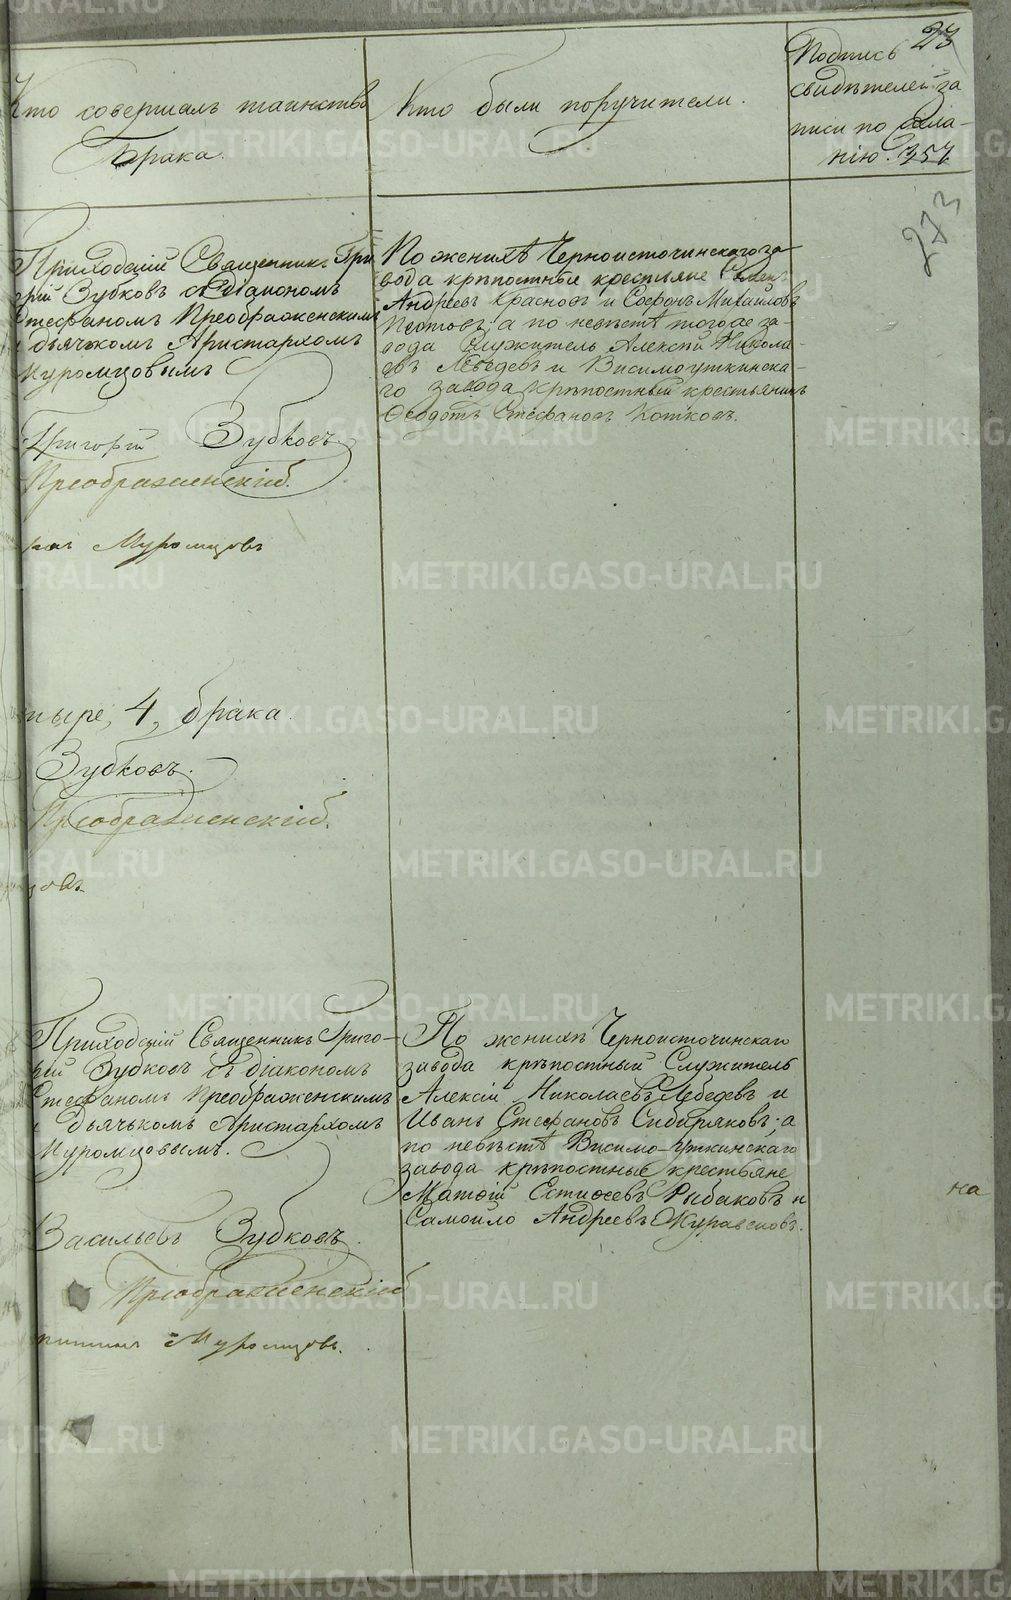 23
Кто совершалъ таинство
Брака.
Кто были поручители.
Подпись
свидѣтелей за
писи по жела-
нію. 357
273
Приходскій Священникъ Гри
горій Зубковъ съ діакономъ
Стефаномъ Преображенскимъ
и дьячкомъ Аристархомъ
Муромцовымъ
Григорій Зубковъ
Преображенскій.
Муромцовъ
По женихѣ Черноисточинскаго за-
вода крѣпостные крестьяне
Андреевъ Красновъ и Софронъ Михайловъ
а по невѣстѣ тогоже за-
вода Служитель Алексѣй Никола-
евъ Лебедевъ и Висимоуткинска-
го завода крѣпостный крестьянинъ
Ѳеодотъ Стефановъ Котковъ.
тыре, 4, брака.
Зубковъ.
Преображенскій.
зовъ
Приходскій Священникъ Григо-
рій Зубковъ съ діакономъ
Стефаномъ Преображенскимъ
и дьячькомъ Аристархомъ
Муромцовымъ.
Васильевъ Зубковъ.
Преображенскій
Муромцовъ.
По женихѣ Черноисточинскаго
завода крѣпостный Служитель
Алексій Николаевъ Лебедевъ и
Иванъ Стефановъ Сибиряковъ; а
по невѣстѣ Висимо-Уткинскаго
завода крѣпостные крестьяне
Матѳій Рыбаковъ и
Самойло Андреевъ Журавлевъ.
на
METRIKI.GASO-URAL.RU